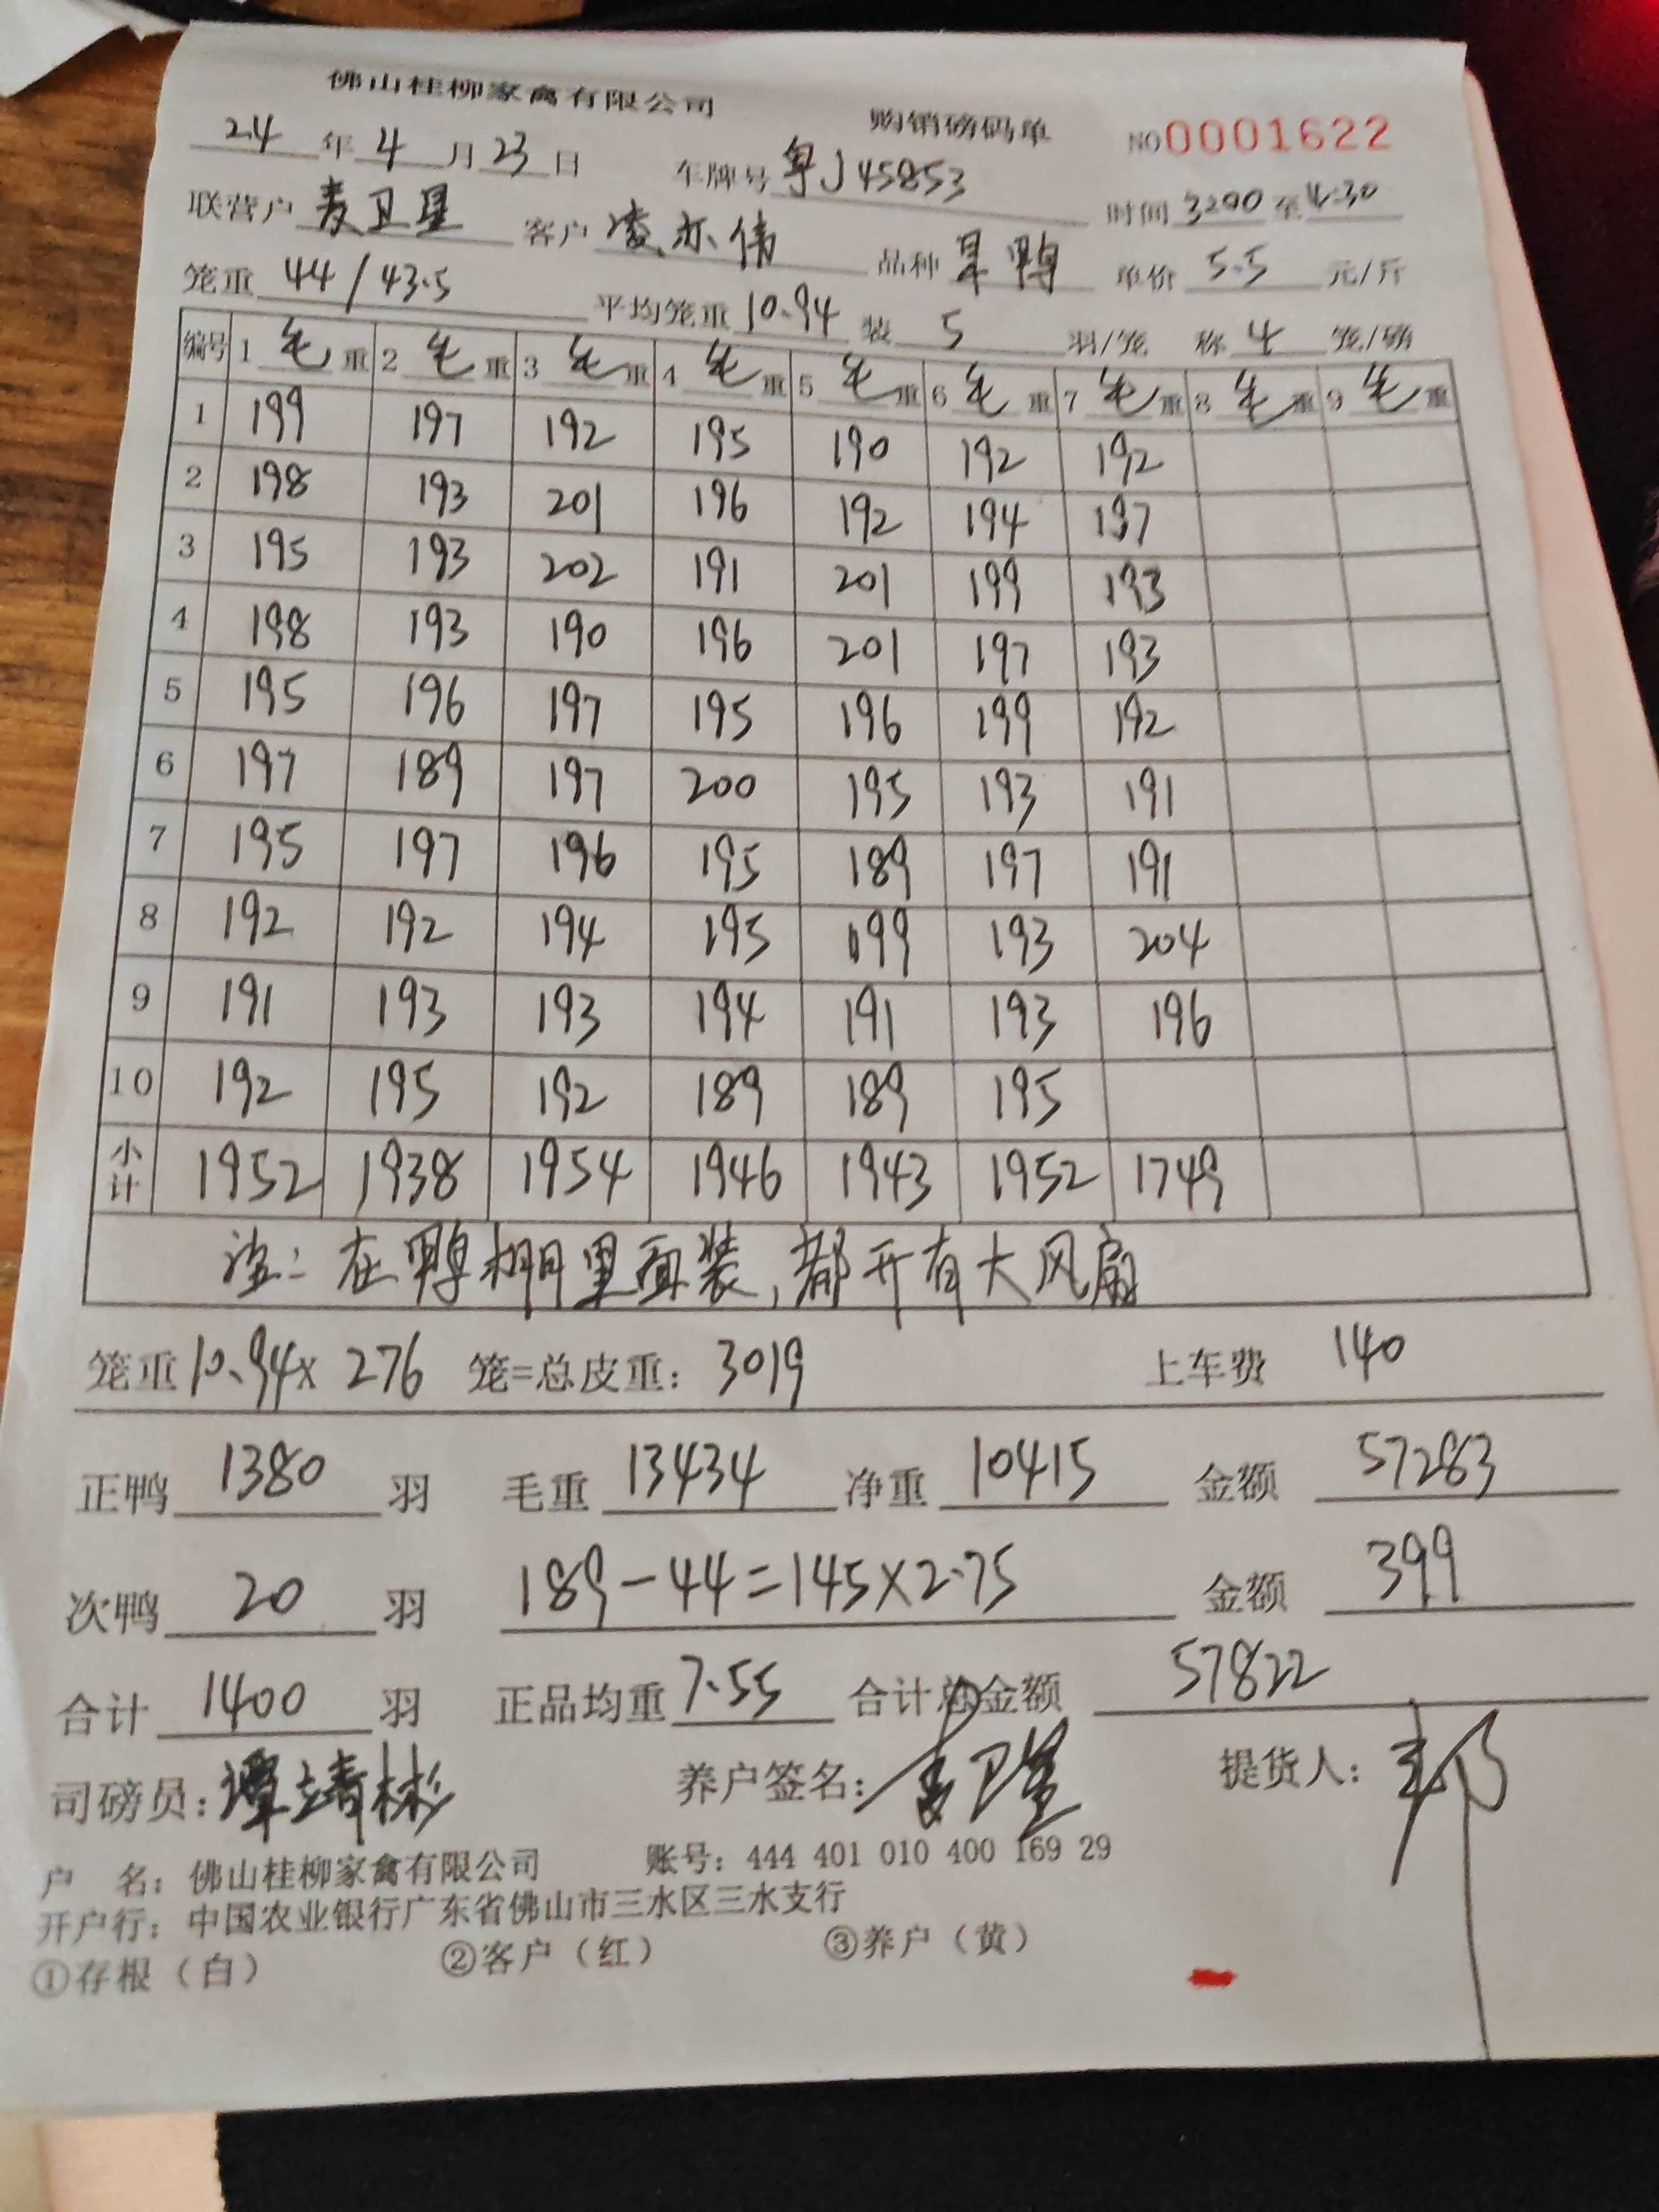 佛山桂柳家禽有限公司 购销磅码单 NO 0001622
24 年 4 月 23 日 车牌号 粤J45853
联营户 麦卫星 客户 凌亦伟 时间 3:00 至 4:30
笼重 44/43.5 品种 单价 5.5 元/斤
平均笼重 10.94 装 5 羽/笼 称 4 笼/磅
编号 1 毛重 2 毛重 3 毛重 4 毛重 5 毛重 6 毛重 7 毛重 8 毛重 9 毛重
1 199 197 192 195 190 192 192
2 198 193 201 196 192 194 197
3 195 193 202 191 201 199 193
4 198 193 190 196 201 197 193
5 195 196 197 195 196 199 192
6 197 189 197 200 195 193 191
7 195 197 196 195 189 197 191
8 192 192 194 195 199 193 204
9 191 193 193 194 191 193 196
10 192 195 192 189 189 195
小计 1952 1938 1954 1946 1943 1952 1749
注:在鸭棚里面装,都开有大风扇
笼重 10.94× 276 笼=总皮重: 3019 上车费 140
正鸭 1380 羽 毛重 13434 净重 10415 金额 57283
次鸭 20 羽 189-44=145×2.75 金额 399
合计 1400 羽 正品均重 7.55 合计总金额 57822
司磅员:谭靖彬 养户签名: 提货人:
户 名:佛山桂柳家禽有限公司 账号:444 401 010 400 169 29
开户行:中国农业银行广东省佛山市三水区三水支行
①存根(白) ②客户(红) ③养户(黄)